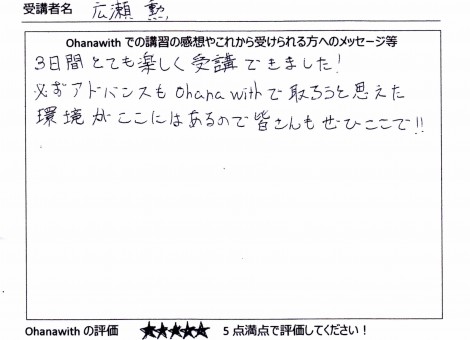 受講者名 広瀬 勲
Ohanawith での講習の感想やこれから受けられる方へのメッセージ等
3日間とても楽しく受講できました!
必ずアドバンスもOhana withで取ろうと思えた
環境がここにはあるので皆さんもぜひここで!!
Ohanawith の評価 ★★★★★ 5 点満点で評価してください!